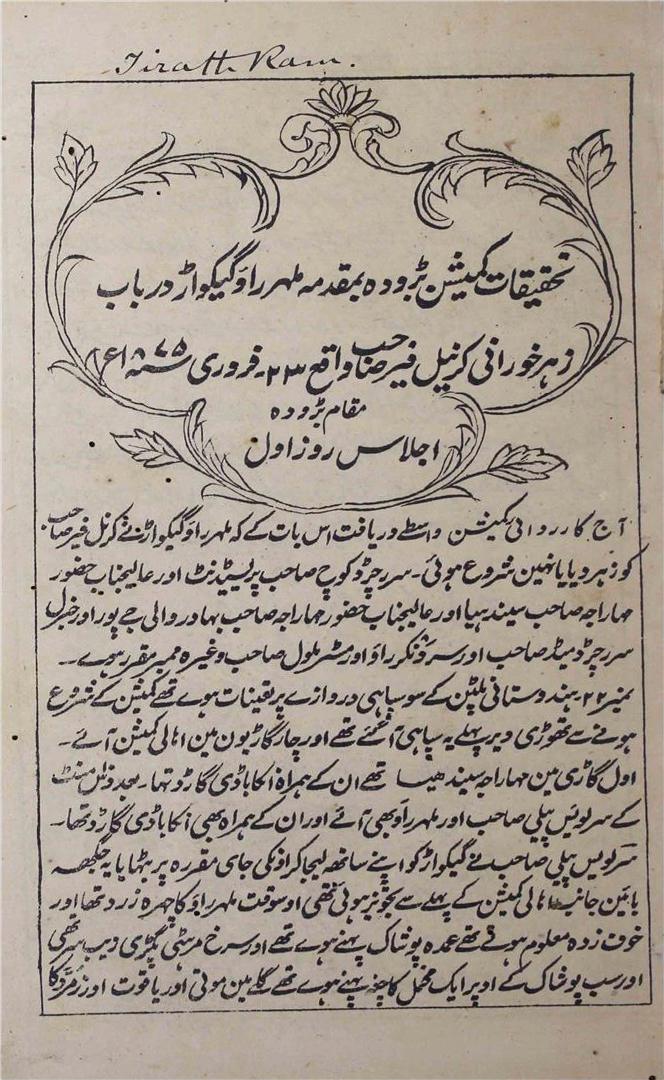 Tirath Ram.
تحقیقات کمیشن بڑودہ بمقدمہ ملہر راؤ گیکواڑ در باب
زہر خورانی کرنیل فیر صاحب واقع ۲۳۔ فروری ۱۸۷۵ء
مقام بڑودہ
اجلاس روز اول
آج کارروائی کمیشن واسطے دریافت اس بات کے کہ ملہر راؤ گیکواڑ نے کرنل فیر صاحب
کو زہر دیا یا نہین شروع ہوئی۔ سر رچرڈ کوچ صاحب پریسیڈنٹ اور عالیجناب حضور
مہاراجہ صاحب سیندہیا اور عالیجناب حضور مہاراجہ صاحب بہادر والی جے پور اور جنرل
سر رچرڈ میڈ صاحب اور سر دنکر راؤ اور مسٹر ملول صاحب وغیرہ ممبر مقرر ہوے۔
نمبر ۲۲۔ ہندوستانی پلٹن کے سو سپاہی دروازے پر تعینات ہوے تھے کمیشن کے شروع
ہونے سے تھوڑی دیر پہلے یہ سپاہی آ گئے تھے اور چار گاڑیون مین اہالی کمیشن آئے۔
اول گاڑی مین مہاراجہ سیندھیا تھے ان کے ہمراہ انکا باڈی گارڈ تہا۔ بعد دس منٹ
کے سر لویس پیلی صاحب اور ملہر راؤ بھی آئے اور ان کے ہمراہ بھی انکا باڈی گارڈ تھا۔
سر لویس پیلی صاحب نے گیکواڑ کو اپنے ساتھ لیجا کر اونکی جای مقررہ پر بٹہایا یہ جگھہ
بائین جانب اہالی کمیشن کے پہلے سے تجویز ہوئی تھی اوسوقت ملہر راؤ کا چہرہ زرد تھا اور
خوف زدہ معلوم ہوتے تھے عمدہ پوشاک پہنے ہوے تھے اور سرخ مرہٹی پگڑی زیب سر تھی
اور سب پوشاک کے اوپر ایک مخمل کا چغہ پہنے ہوے تھے گلے مین موتی اور یاقوت اور زمرد کا